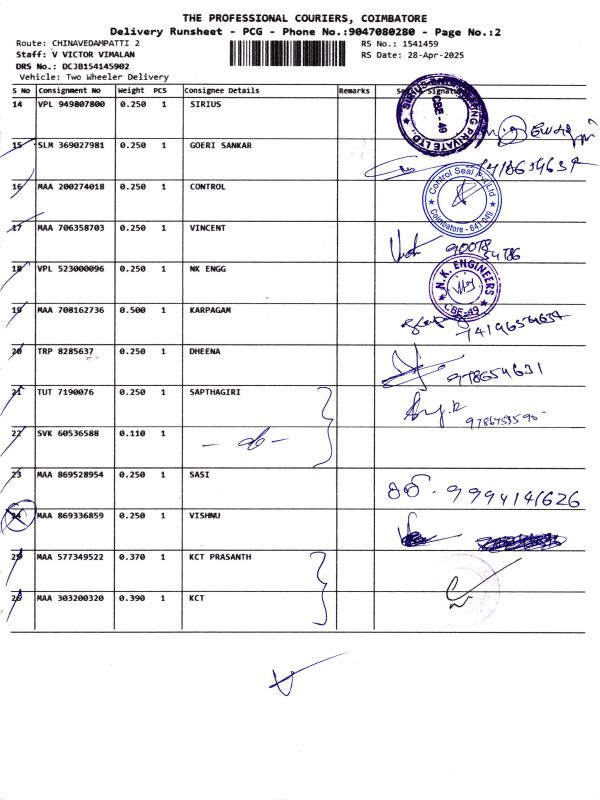 THE PROFESSIONAL COURIERS, COIMBATORE
Delivery Runsheet - PCG - Phone No.:9047080280 - Page No.:2
Route: CHINAVEDAMPATTI 2
Staff: V VICTOR VIMALAN
DRS No.: DCJB154145902
Vehicle: Two Wheeler Delivery
RS No.: 1541459
RS Date: 28-Apr-2025
S No Consignment No Weight PCS Consignee Details Remarks
14 VPL 949807800 0.250 1 SIRIUS
CBE - 49
15 SLM 369027981 0.250 1 GOERI SANKAR
16 MAA 200274018 0.250 1 CONTROL
Control Seal Pvt Ltd
Coimbatore - 641 049
17 MAA 706358703 0.250 1 VINCENT
18 VPL 523000096 0.250 1 NK ENGG
N.K. ENGINEERS
CBE-49
19 MAA 708162736 0.500 1 KARPAGAM
20 TRP 8285637 0.250 1 DHEENA
978654631
21 TUT 7190076 0.250 1 SAPTHAGIRI
22 SVK 60536588 0.110 1
23 MAA 869528954 0.250 1 SASI
9994141626
24 MAA 869336859 0.250 1 VISHNU
25 MAA 577349522 0.370 1 KCT PRASANTH
26 MAA 303200320 0.390 1 KCT